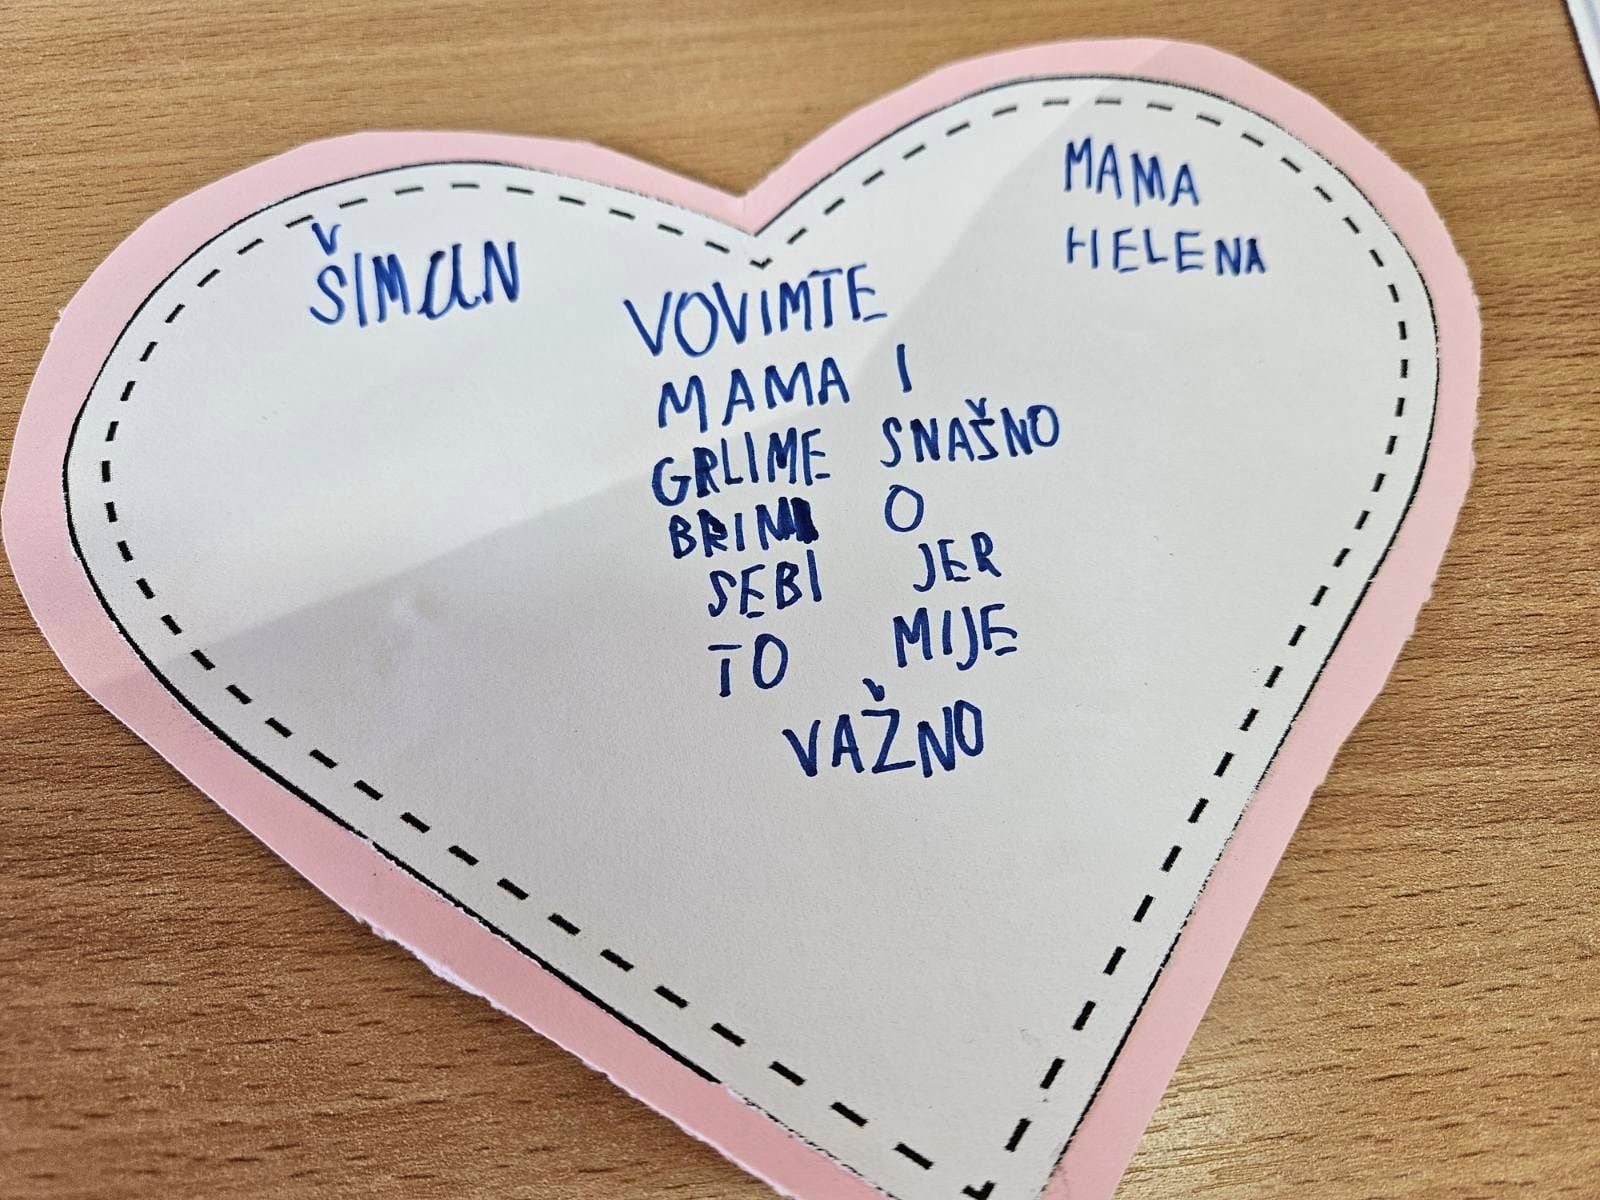 ŠIMUN
MAMA
HELENA
VOVIMTE
MAMA I
GRLIME SNAŠNO
BRINI O
SEBI JER
TO MIJE
VAŽNO